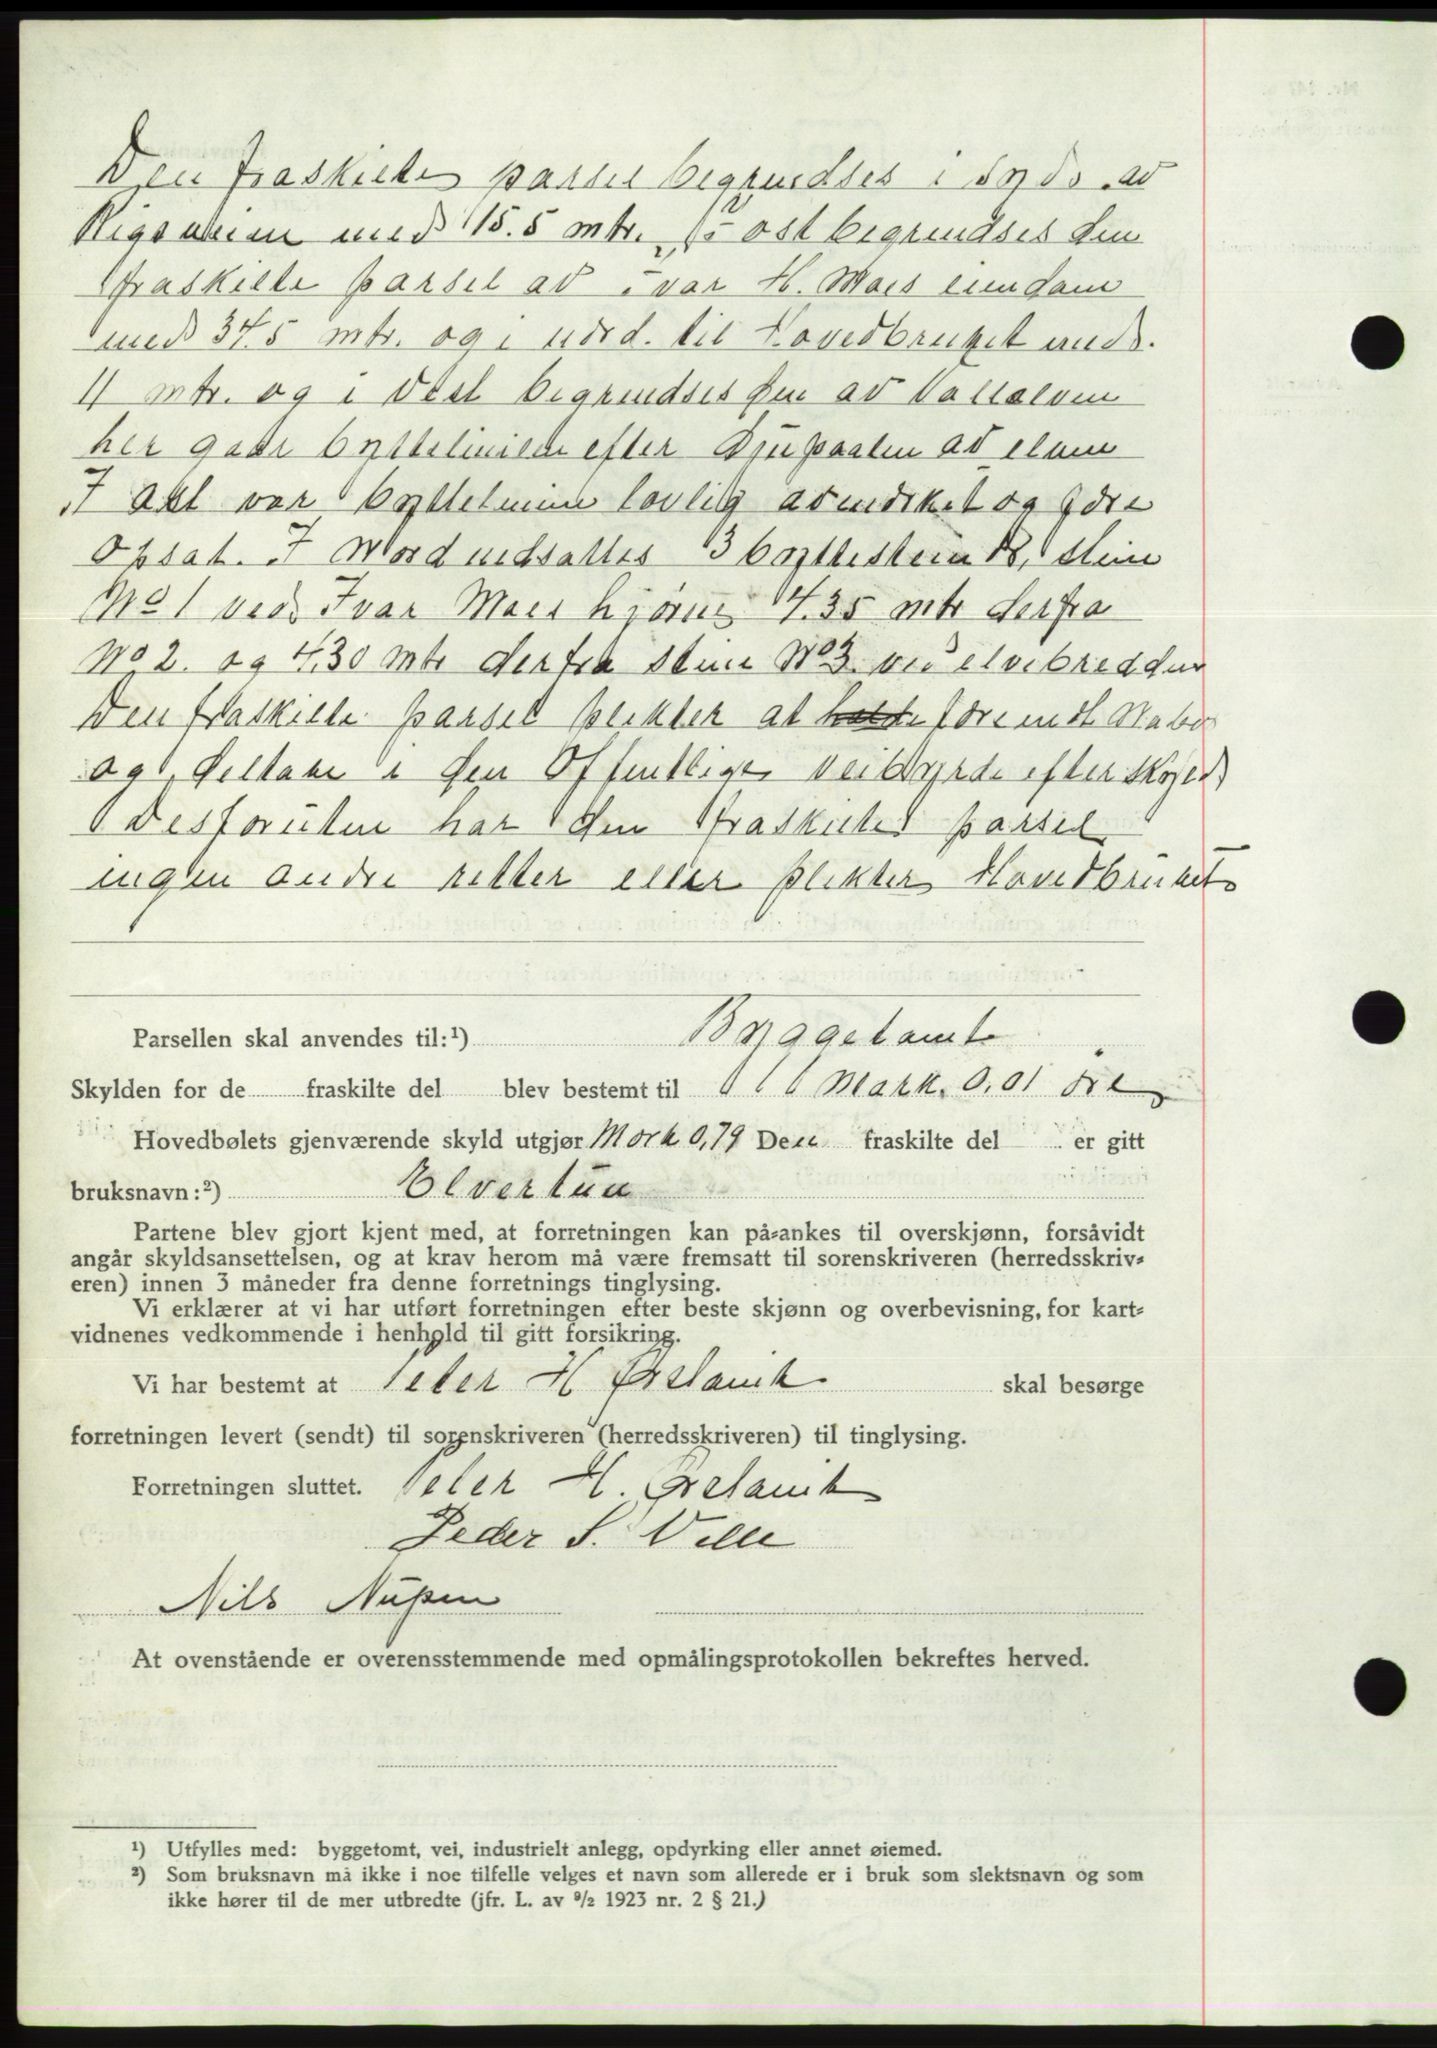 Den fraskilte parsel begrendses i Syd. av
Rigsveien med 15.5 mtr. I ost begrendses den
fraskilte parsel av Ivar H. Moes eiendom
med 34.5 mtr. og i nord. til Hovedbruket med.
11 mtr. og i Vest begrendses den av Valleelven
her gaar byttelinien efter Djupaalen av elven
I ost var byttelinien lovlig avmerket og før
opsat. I Nord nedsattes 3 byttesteiner, Stein
No 1 ved Ivar Moes hjørne 4.35 mtr derfra
No 2. og 4.30 mtr derfra stein No 3. ved elvebredden
Den fraskilte parsel plikter at holde forendt Nabo
og deltar i den Offentlige veibyrde efter Skyld
Desforuten har den fraskilte parsel
ingen andre retter eller plikter Hovedbruket
Parsellen skal anvendes til:¹) Byggetomt
Skylden for de fraskilte del blev bestemt til Mark. 0,01 øre
Hovedbølets gjenværende skyld utgjør Mark 0,79 Den fraskilte del er gitt
bruksnavn:²) Elvertun
Partene blev gjort kjent med, at forretningen kan på-ankes til overskjønn, forsåvidt
angår skyldsansettelsen, og at krav herom må være fremsatt til sorenskriveren (herredsskriv-
eren) innen 3 måneder fra denne forretnings tinglysing.
Vi erklærer at vi har utført forretningen efter beste skjønn og overbevisning, for kart-
vidnenes vedkommende i henhold til gitt forsikring.
Vi har bestemt at Peter H Ørslavik skal besørge
forretningen levert (sendt) til sorenskriveren (herredsskriveren) til tinglysing.
Forretningen sluttet. Peter H. Ørslavik
Peder S. Velle
Nils Nupen
At ovenstående er overensstemmende med opmålingsprotokollen bekreftes herved.
¹) Utfylles med: byggetomt, vei, industrielt anlegg, opdyrking eller annet øiemed.
²) Som bruksnavn må ikke i noe tilfelle velges et navn som allerede er i bruk som slektsnavn og som
ikke hører til de mer utbredte (jfr. L. av ⁹/₂ 1923 nr. 2 § 21.)